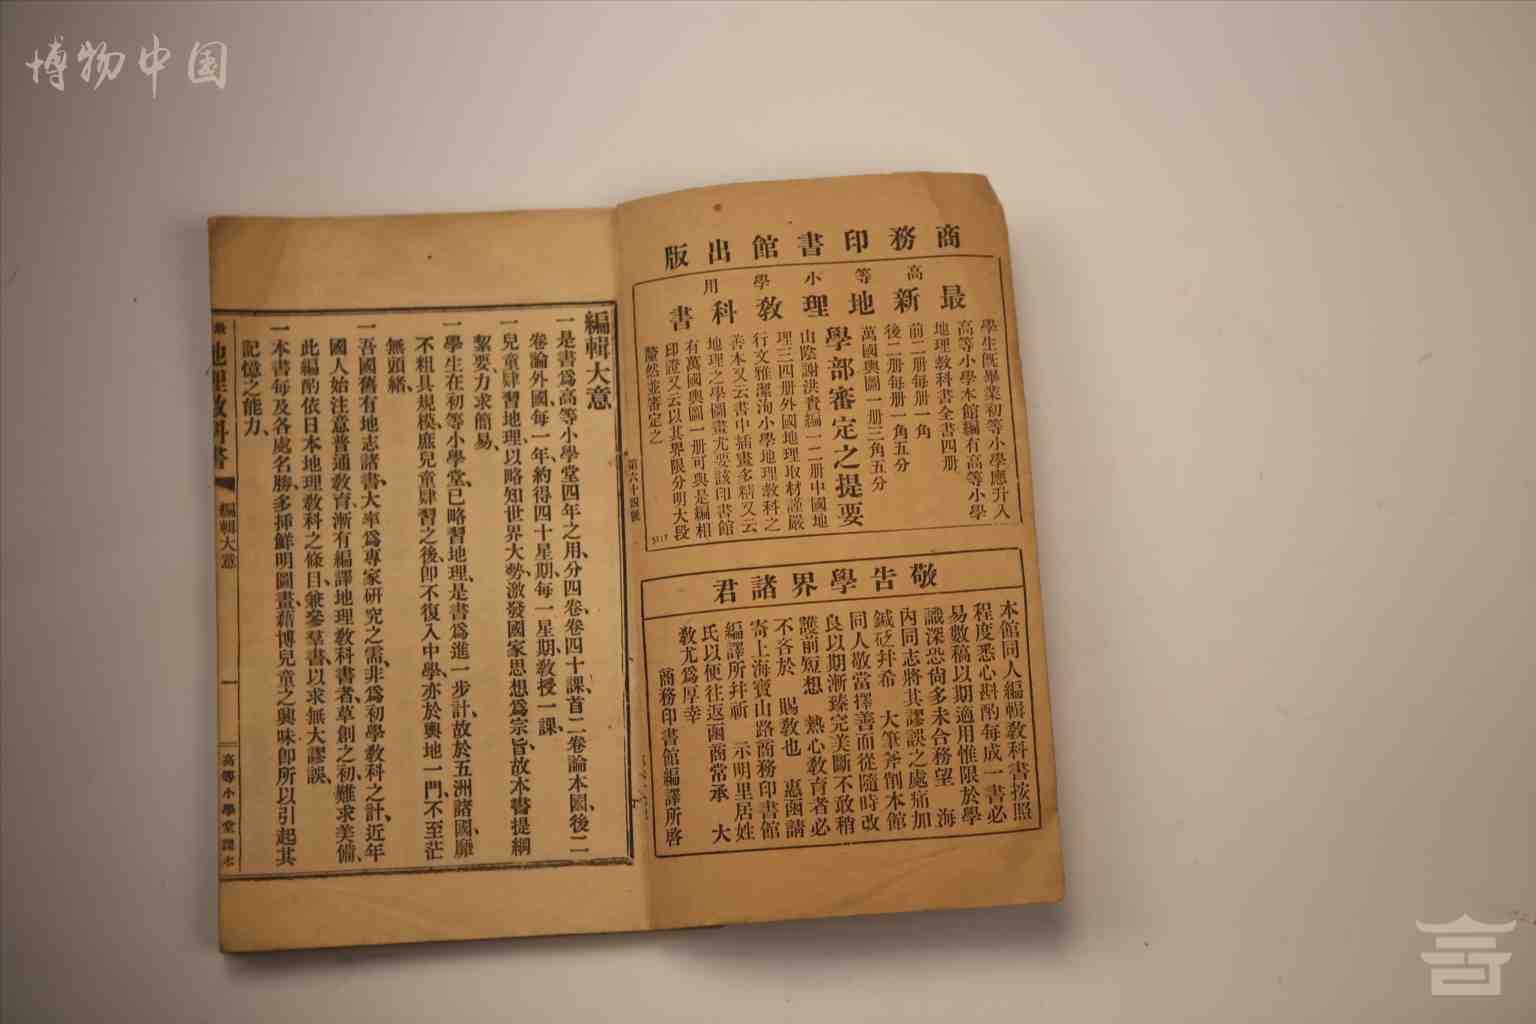 博物中国
商務印書館出版
高等小學用
最新地理教科書
學生既畢業初等小學應升入
高等小學本館編有高等小學
地理教科書全書四册
前二册每册一角
後二册每册一角五分
萬國輿圖一册三角五分
學部審定之提要
山陰謝洪賚編一二册中國地
理三四册外國地理取材謹嚴
行文雅潔洵小學地理教科之
善本又云書中插畫多精又云
地理之學圖畫尤要該印書館
有萬國輿圖一册可與是編相
印證又云以其界限分明大段
釐然並審定之
敬告學界諸君
本館同人編輯教科書按照
程度悉心斟酌每成一書必
易數稿以期適用惟限於學
識深恐尙多未合務望　海
內同志將其謬誤之處痛加
鍼砭幷希　大筆斧削本館
同人敬當擇善而從隨時改
良以期漸臻完美斷不敢稍
護前短想　熱心教育者必
不吝於　賜教也　惠函請
寄上海寶山路商務印書館
編譯所幷祈　示明里居姓
氏以便往返函商常承　大
教尤爲厚幸
商務印書館編譯所啓
第六十四號
編輯大意
一是書爲高等小學堂四年之用、分四卷、卷四十課、首二卷論本國、後二
卷論外國、每一年、約得四十星期、每一星期教授一課、
一兒童肄習地理、以略知世界大勢、激發國家思想爲宗旨、故本書提綱
絜要、力求簡易、
一學生在初等小學堂、已略習地理、是書爲進一步計、故於五洲諸國、靡
不粗具規模、庶兒童肄習之後、卽不復入中學、亦於輿地一門、不至茫
無頭緒、
一吾國舊有地志諸書、大率爲專家研究之需、非爲初學教科之計、近年
國人始注意普通教育、漸有編譯地理教科書者、草創之初、難求美備、
此編酌依日本地理教科之條目、兼參羣書、以求無大謬誤、
一本書每及各處名勝、多揷鮮明圖畫、藉博兒童之興味、卽所以引起其
記憶之能力、
最新地理教科書
編輯大意
一
高等小學堂課本